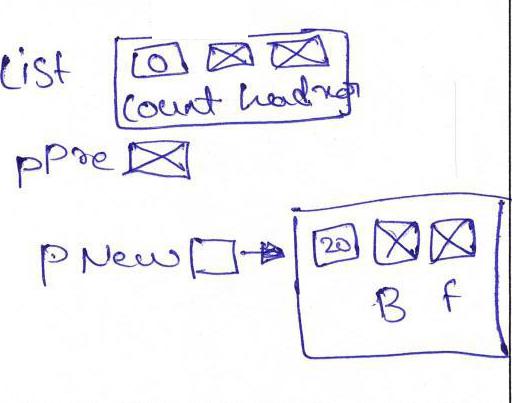 List 0
count head rear
pPre
pNew 20
B f